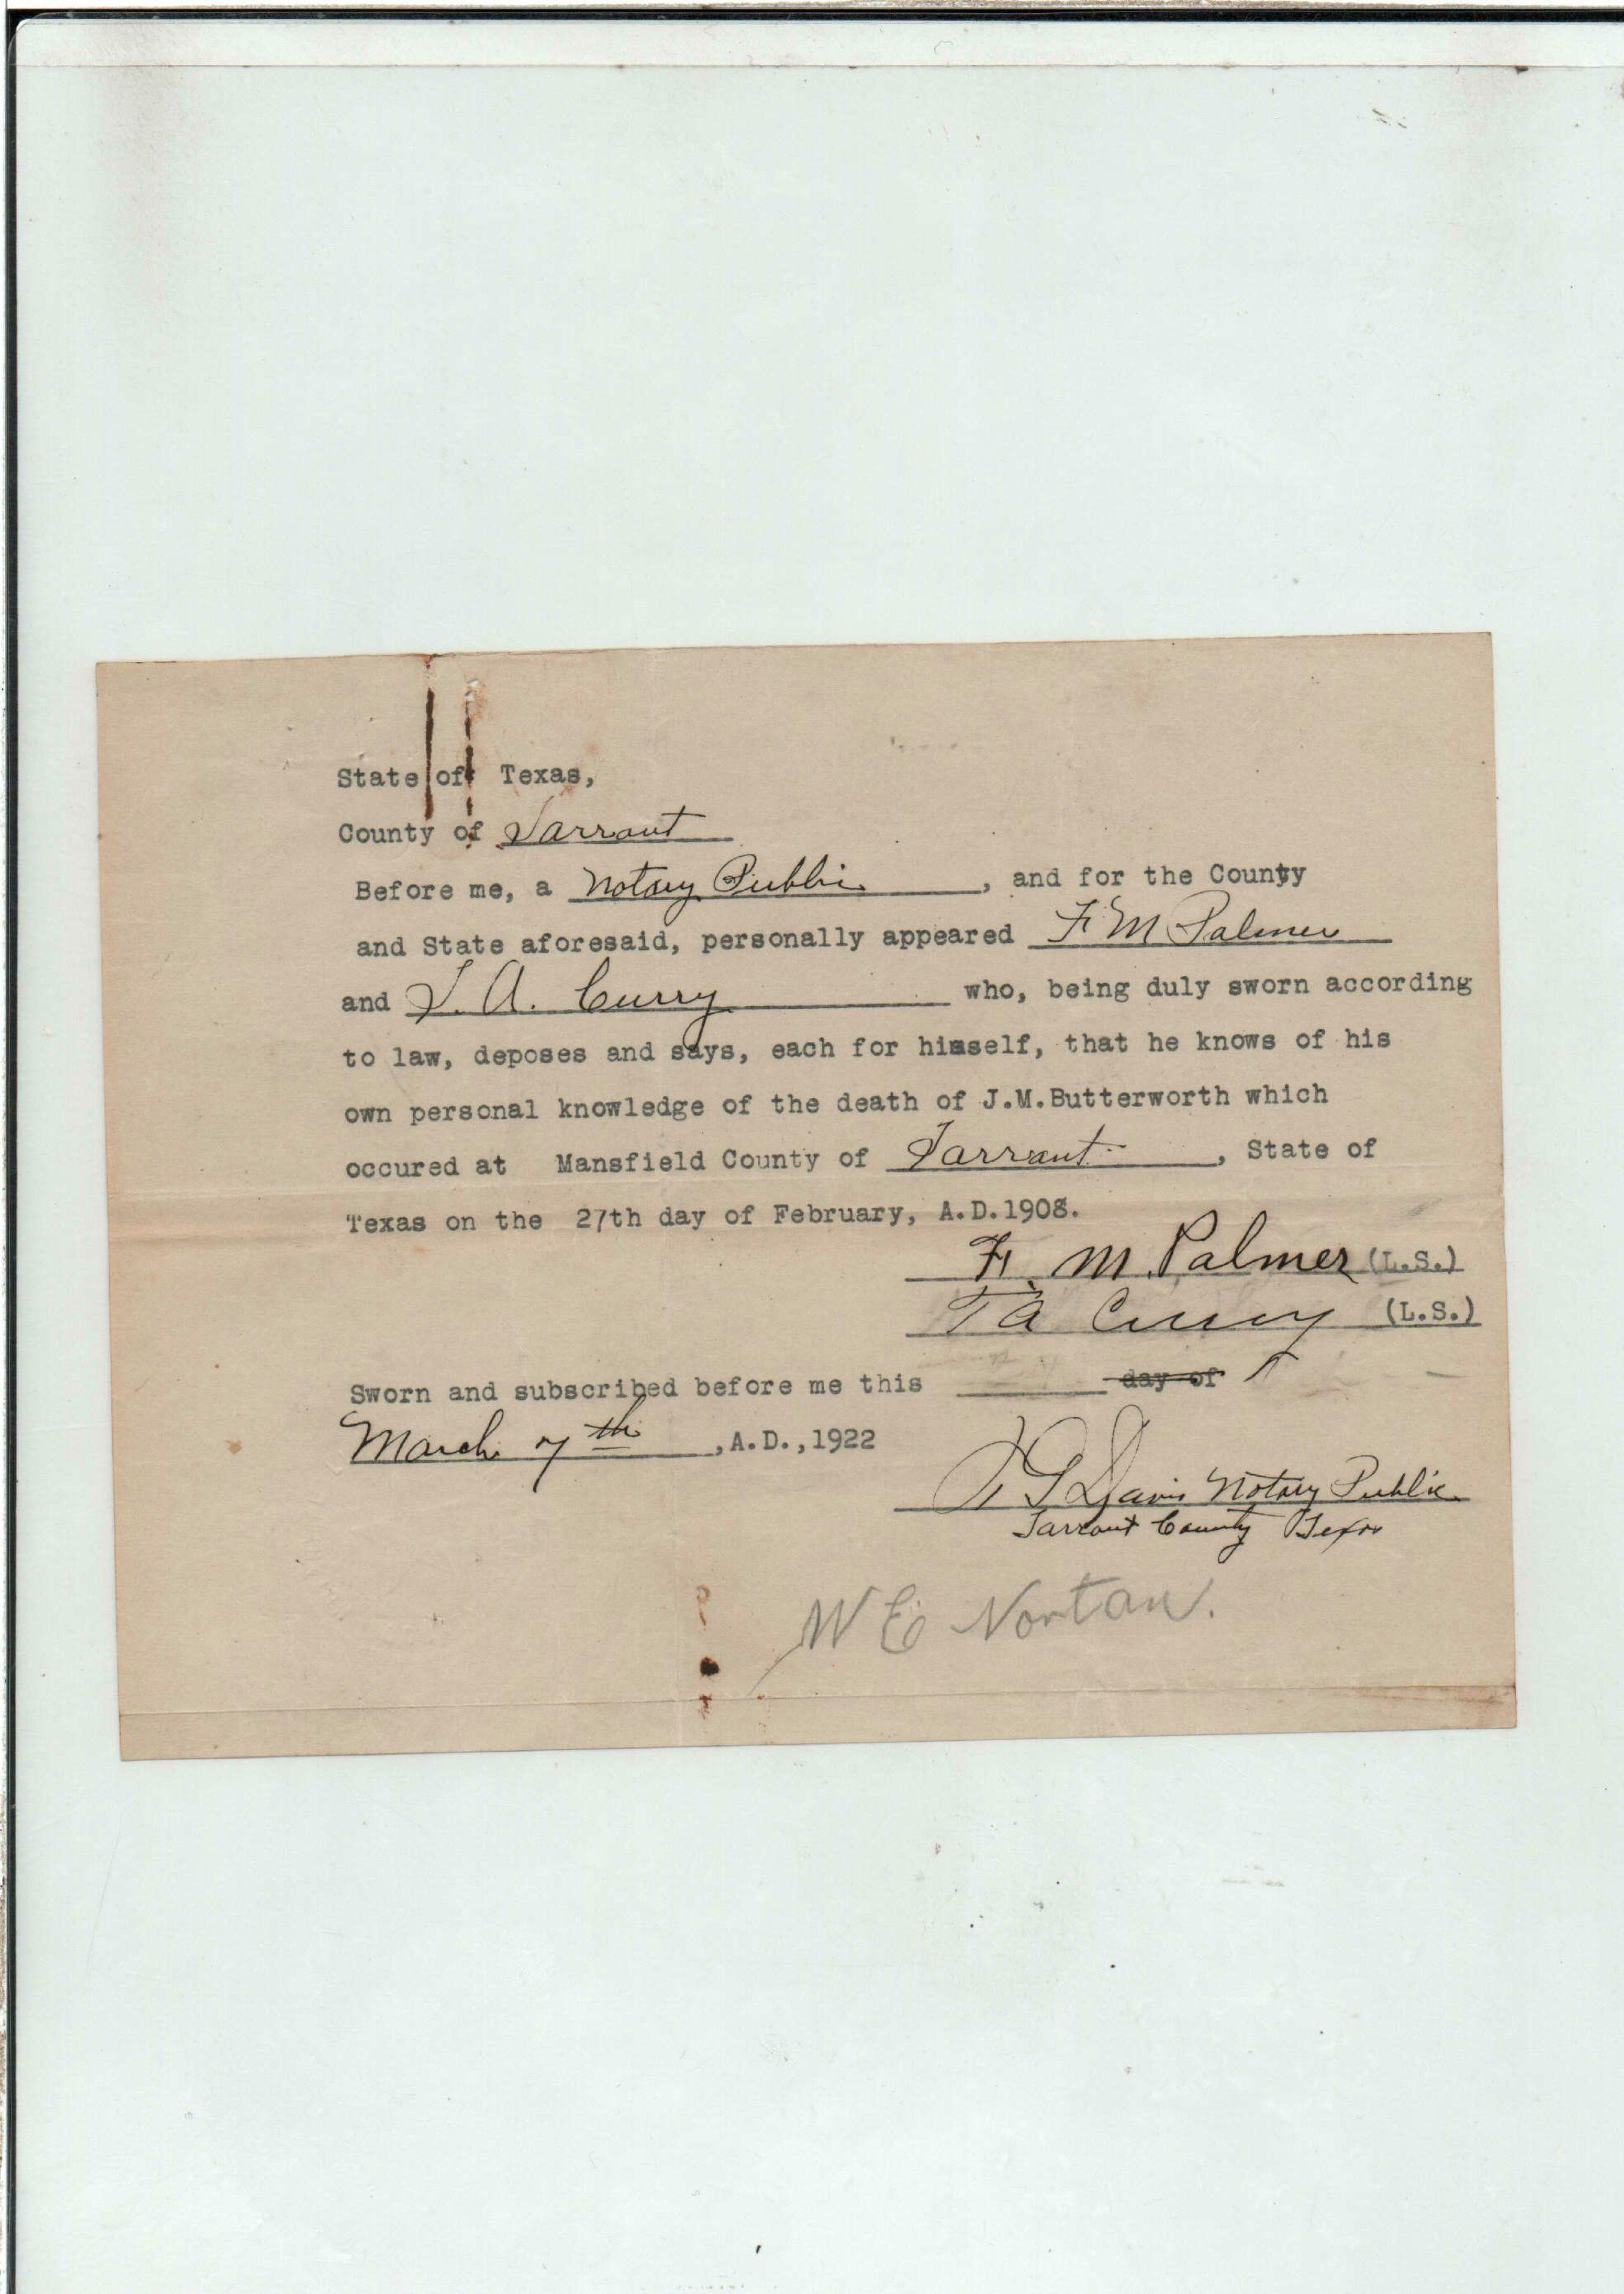 State of Texas,
County of Tarrant
Before me, a Notary Public, and for the County
and State aforesaid, personally appeared F M Palmer
and T. A. Curry who, being duly sworn according
to law, deposes and says, each for himself, that he knows of his
own personal knowledge of the death of J.M.Butterworth which
occured at Mansfield County of Tarrant, State of
Texas on the 27th day of February, A.D.1908.
F. M. Palmer (L.S.)
T A Curry (L.S.)
Sworn and subscribed before me this day of
March 7th, A.D.,1922
Davis Notary Public
Tarrant County Texas
W E Norton.